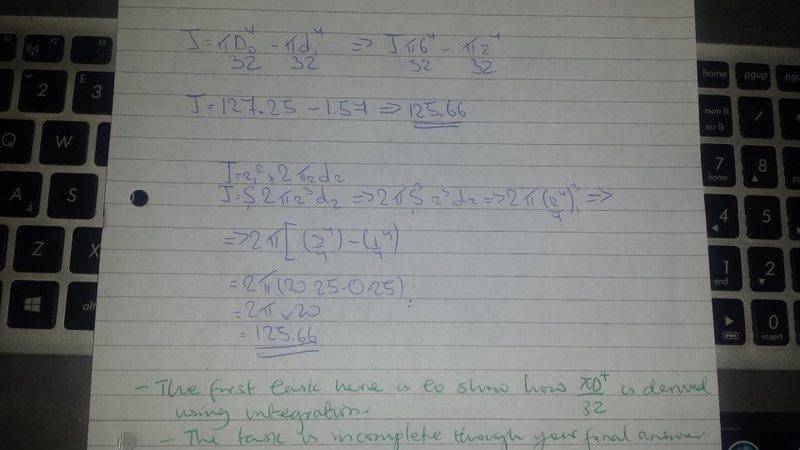 J = πD₀⁴/32 - πd₁⁴/32 => Jπ6⁴/32 - π2⁴/32
J = 127.25 - 1.57 => 125.66
J = r² × 2πrdr
J = ∫ 2πr³dr => 2π ∫₁³ r³dr => 2π(r⁴/4)³₁ =>
=> 2π[(3⁴/4) - (1⁴/4)
= 2π(20.25-0.25)
= 2π × 20
= 125.66
- The first task here is to show how πD⁴/32 is derived
using integration.
- The task is incomplete though your final answer
Q W
A S
Z X
2 £ 3
alt
home pgup pgdn
num lk scr lk /
7 home 8
4 5
1 end 2
0 insert